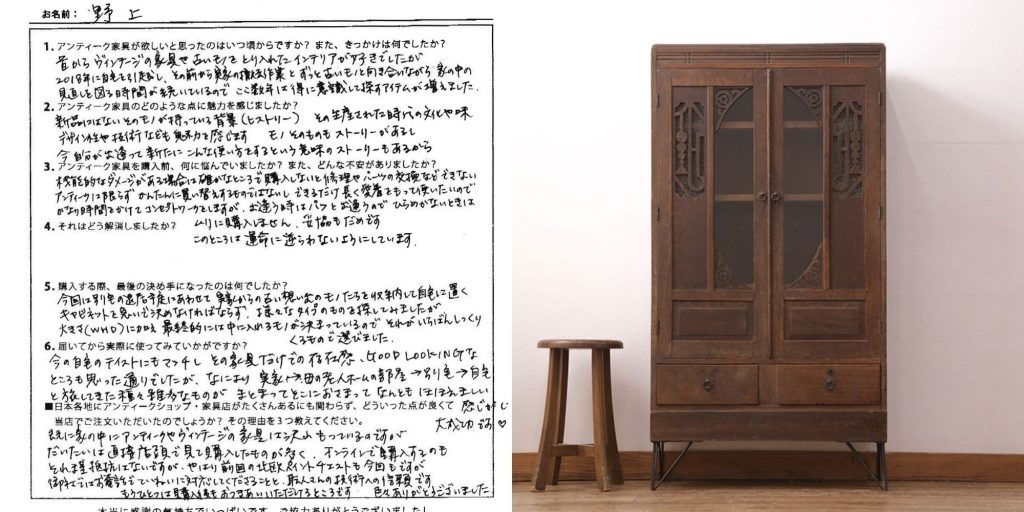 お名前： 野上
1. アンティーク家具が欲しいと思ったのはいつ頃からですか？また、きっかけは何でしたか？
昔から ヴィンテージの家具や古いモノをとり入れたインテリアが好きでしたが
2018年に自宅を引越し、その前から実家の撤去作業とずっと古いモノと向き合いながら 家の中の
見直しを図る時間が続いているので ここ数年は特に意識して探すアイテムが増えました。
2. アンティーク家具のどのような点に魅力を感じましたか？
新品にはないそのモノが持っている背景（ヒストリー） その生産された時代の文化や味
デザイン性や技術なども魅力を感じます モノそのものもストーリーがあるし
今自分が出逢って新たにこんな使い方をするという意味のストーリーもあるから
3. アンティーク家具を購入前、何に悩んでいましたか？また、どんな不安がありましたか？
機能的なダメージがある場合は確かなところで購入しないと修理やパーツの交換などできない
アンティークに限らずかんたんに買い替えするものではないし できるだけ長く愛着をもって使いたいので
かなり時間をかけてコンセプトワークをしますが、出逢う時はパッと出逢うので ひらめかないときは
4. それはどう解消しましたか？ ムリに購入しません。妥協もだめです
このところは運命に逆らわないようにしています。
5. 購入する際、最後の決め手になったのは何でしたか？
今回は別宅の退居予定にあわせて 実家からの古い想い出のモノたちを収納して自宅に置く
キャビネットを急いで決めなければならず、様々なタイプのものを探してみましたが
大きさ(WHD)に加え 最終的には中に入れるモノが決まっているので それがいちばんしっくり
くるもので選びました。
6. 届いてから実際に使ってみていかがですか？
今の自宅のテイストにもマッチし その家具だけでの存在感、GOOD LOOKINGな
ところも思った通りでしたが、なにより 実家→母の老人ホームの部屋→別宅→自宅
と旅してきた種々雑多なものが まとまってそこにおさまって なんとも ほほえましい
■日本各地にアンティークショップ・家具店がたくさんあるにも関わらず、どういった点が良くて 感じがし
当店でご注文いただいたのでしょうか？その理由を３つ教えてください。 大成功です♡
既に家の中にアンティークやヴィンテージの家具は沢山もっているのですが
だいたいは直接店頭で見て購入したものが多く、オンラインで購入するのも
それ程抵抗はないですが、やはり前回の北欧ペイントチェストも今回もですが
御社ではお電話でていねいに対応してくださることと、職人さんの技術への信頼です
もうひとつは購入後もおつきあいいただけるところです 色々ありがとうございました
本当に感謝の気持ちでいっぱいです。ご協力ありがとうございました！